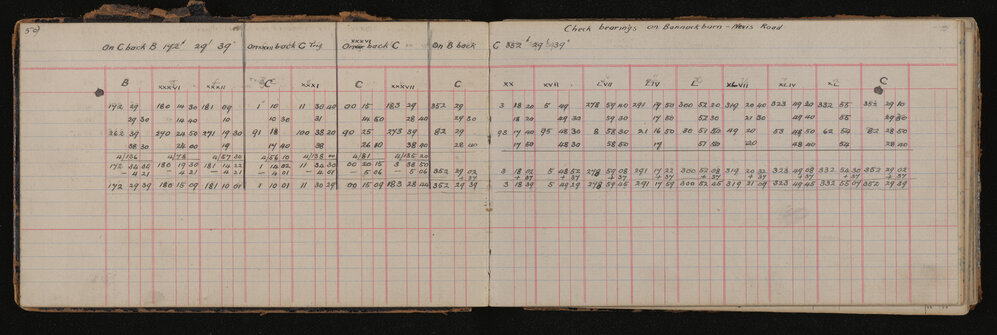 50
Check bearings on Bannockburn - Nevis Road
On C back B 172° 29' 39" On XXXII back C Trig On XXXVI back C On B back C 352° 29' 39"
B XXXVI XXXII C XXXI C XXXVII C XX XVII LVII LIV L XLVII XLIV XL C
172 29 180 14 30 181 09 1 10 11 30 40 00 15 183 29 352 29 3 18 20 5 49 278 59 40 291 17 50 300 52 20 319 20 40 323 49 20 332 55 352 29 10
29 30 14 40 10 10 30 31 14 50 28 40 29 30 18 20 49 30 59 30 17 50 52 30 21 30 49 40 55 29
262 39 270 24 50 271 19 30 91 18 100 38 20 90 25 273 39 82 29 93 17 40 95 48 30 8 58 30 21 16 50 30 51 50 49 20 53 48 50 62 54 82 28 50
38 30 24 00 19 17 40 38 26 10 38 40 28 40 17 50 48 30 58 50 17 51 50 20 48 40 54 28 40
4/136 4/78 4/57 30 4/56 10 4/138 00 4/81 4/135 20
172 34 00 180 19 30 181 14 22 1 14 02 11 34 30 00 20 15 3 33 50 352 29 02 3 18 02 5 48 52 278 59 08 291 17 22 300 52 08 319 20 32 323 49 08 332 54 30 352 29 02
- 4 21 - 4 21 - 4 21 - 4 01 - 4 01 - 5 06 - 5 06 + 37 + 37 + 37 + 37 + 37 + 37 + 37 + 37 + 37 + 37
172 29 39 180 15 09 181 10 01 1 10 01 11 30 29 00 15 09 183 28 44 352 29 39 3 18 39 5 49 29 278 59 45 291 17 59 300 52 45 319 21 09 323 49 45 332 55 07 352 29 39